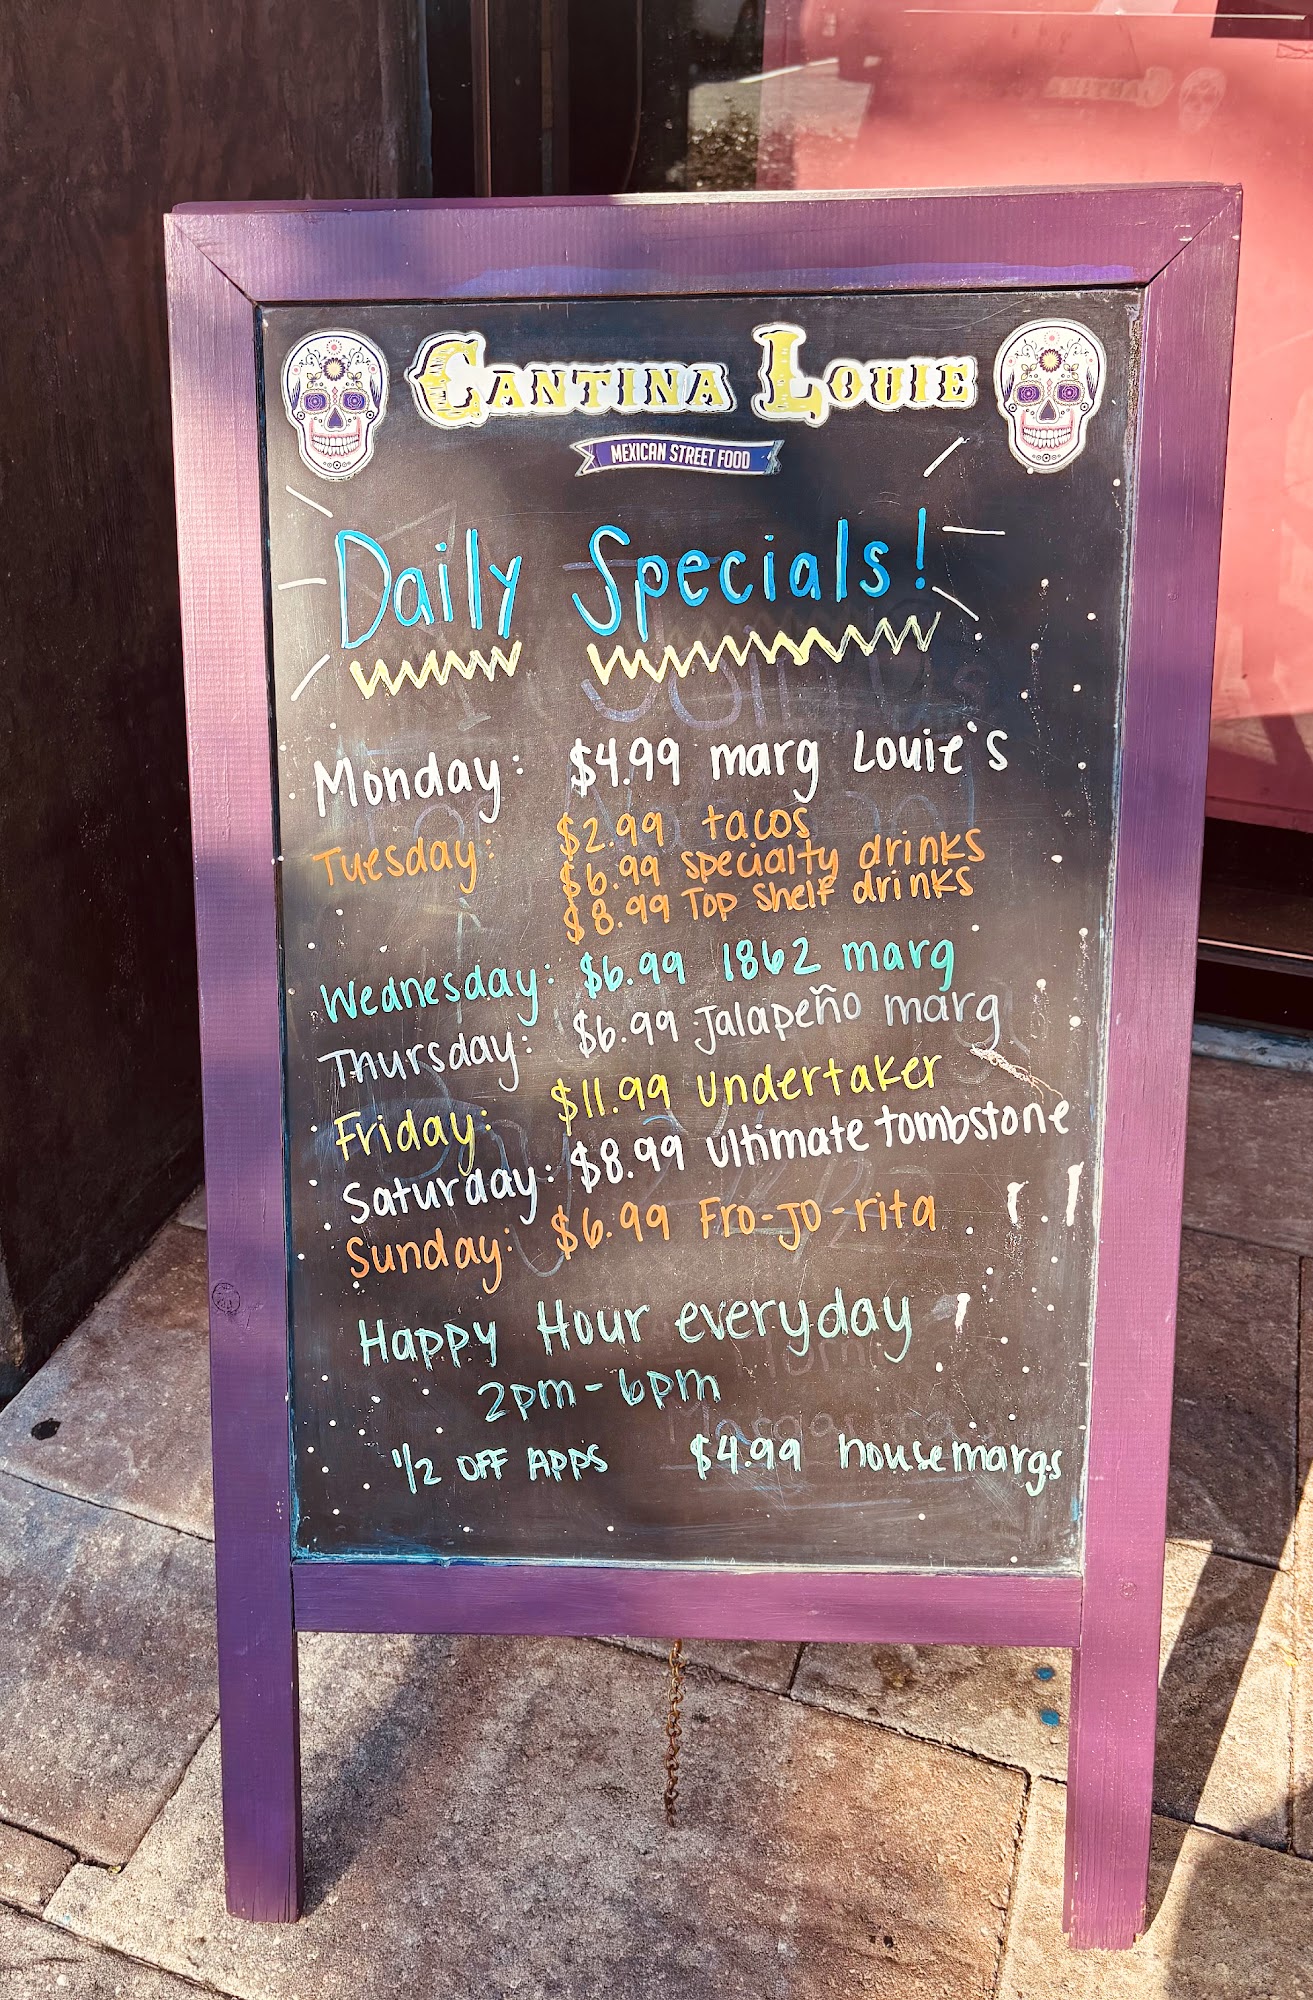 CANTINA LOUIE
MEXICAN STREET FOOD
Daily Specials!
Monday: $4.99 marg Louie's
Tuesday: $2.99 tacos
$6.99 specialty drinks
$8.99 Top shelf drinks
Wednesday: $6.99 1862 marg
Thursday: $6.99 Jalapeño marg
Friday: $11.99 undertaker
Saturday: $8.99 ultimate tombstone
Sunday: $6.99 Fro-Jo-rita
Happy Hour everyday
2pm-6pm
1/2 OFF APPS $4.99 house margs